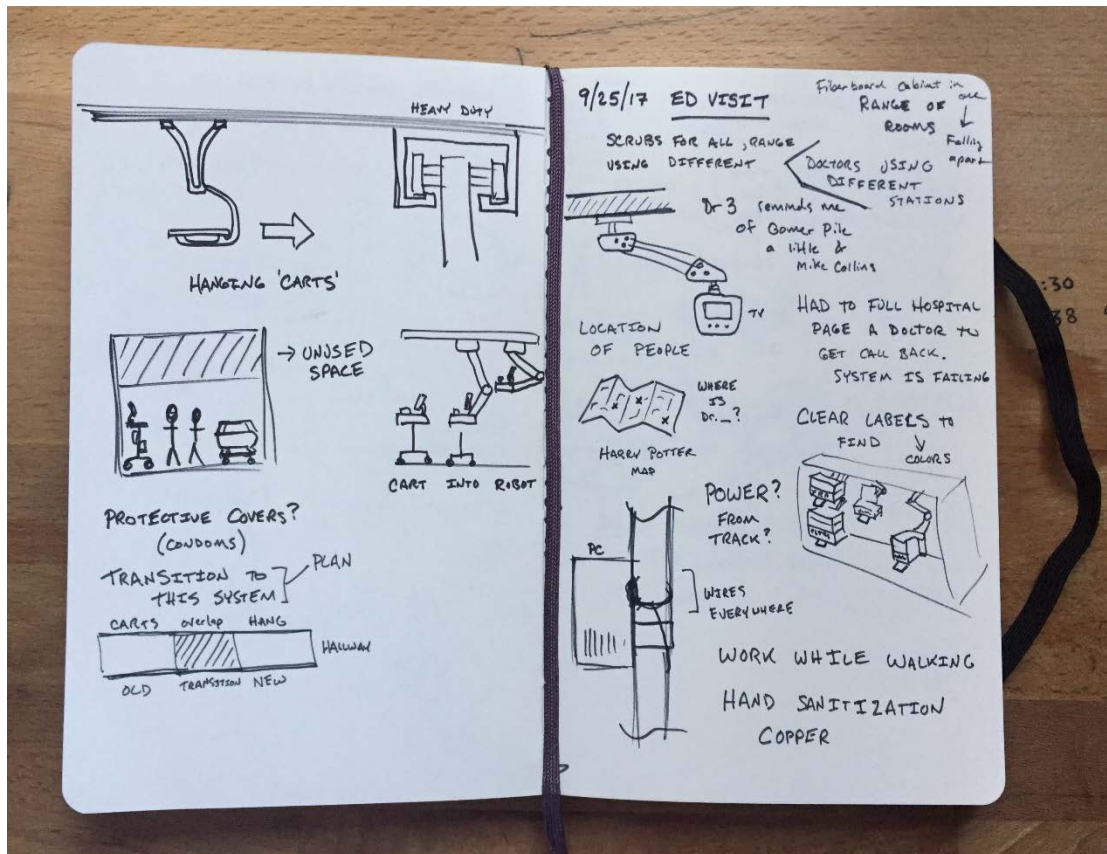 HEAVY DUTY
HANGING 'CARTS'
→ UNUSED
SPACE
CART INTO ROBOT
PROTECTIVE COVERS?
(CONDOMS)
TRANSITION TO
THIS SYSTEM
PLAN
CARTS overlap HANG
HALLWAY
OLD TRANSITION NEW
9/25/17 ED VISIT
Fiberboard cabinet in one
RANGE OF
ROOMS
Falling
apart
SCRUBS FOR ALL, RANGE
USING DIFFERENT
DOCTORS USING
DIFFERENT
STATIONS
Dr 3 reminds me
of Gomer Pile
a little &
Mike Collins
TV
LOCATION
OF PEOPLE
HAD TO FULL HOSPITAL
PAGE A DOCTOR TO
GET CALL BACK.
SYSTEM IS FAILING
WHERE
IS
Dr. _?
HARRY POTTER
MAP
CLEAR LABELS to
FIND
COLORS
POWER?
FROM
TRACK?
PC
WIRES
EVERYWHERE
WORK WHILE WALKING
HAND SANITIZATION
COPPER
:30
38